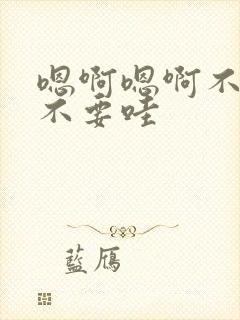 嗯啊嗯啊不
不要哇
藍雁